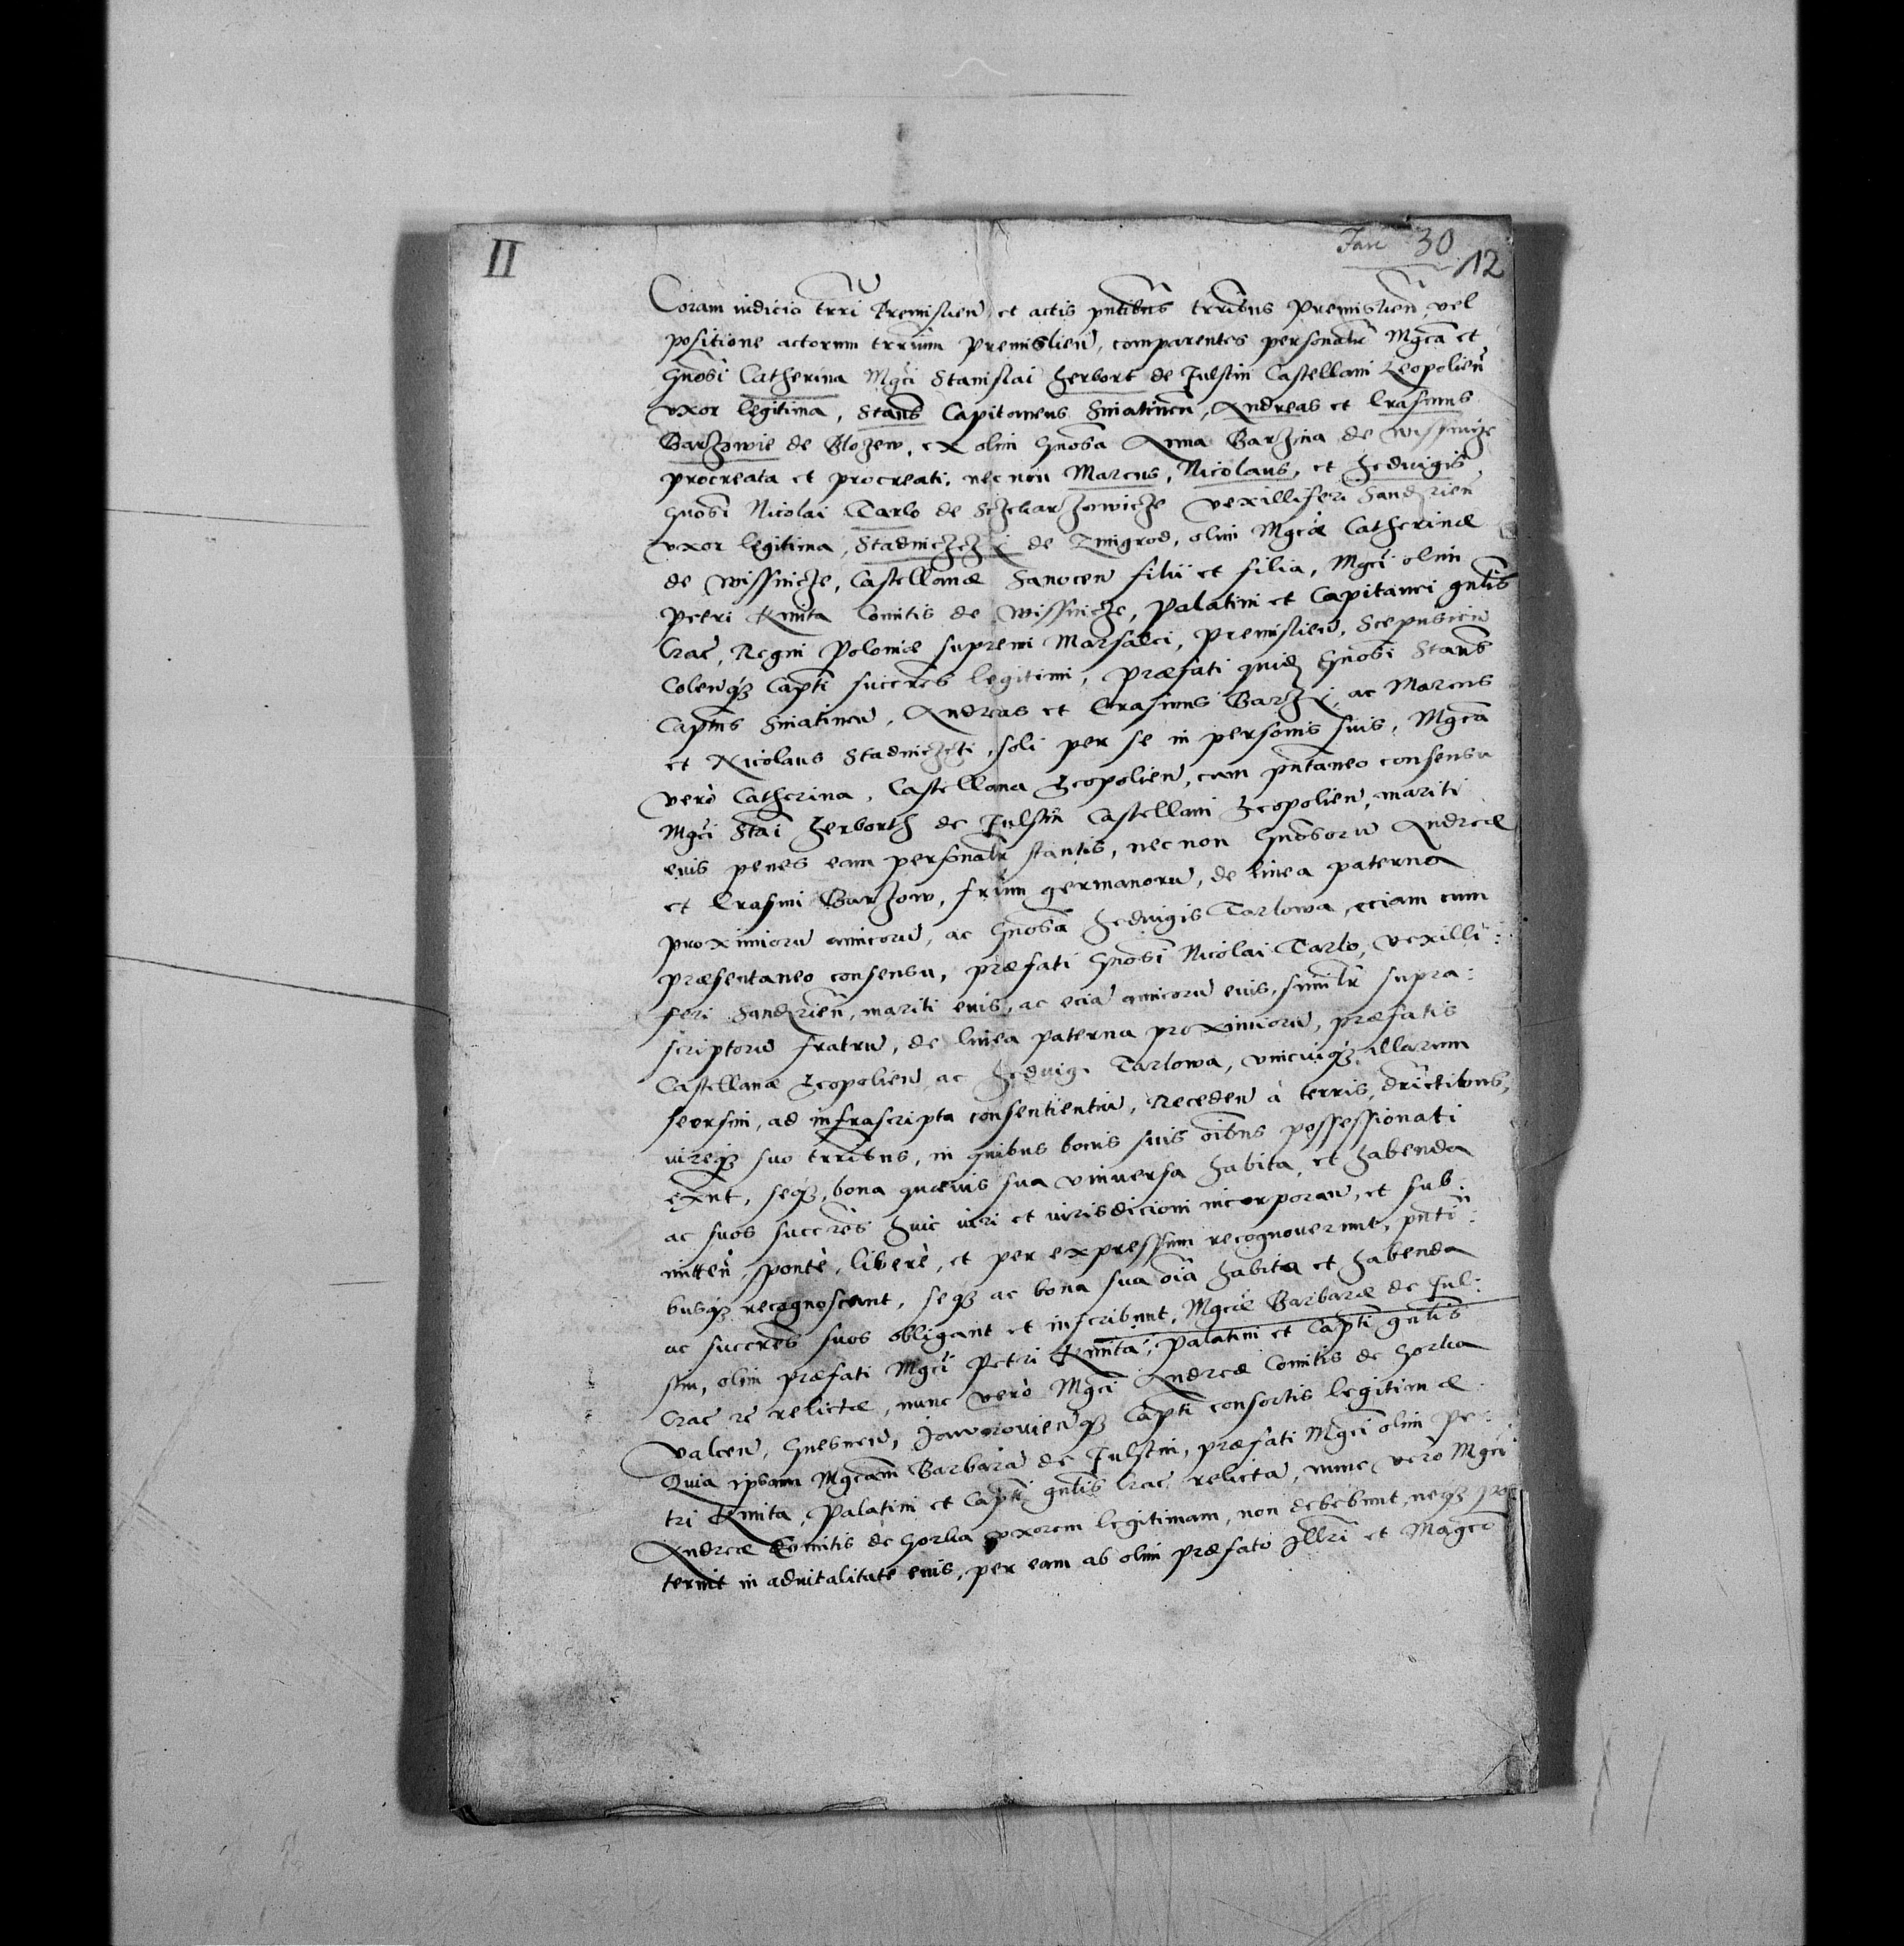 II
Fasc 30
12
Coram iudicio trri Premislien, et actis pntibus trribus Premislien, vel
positione actorum trrium Premislien, comparentes personalr Mgca et
Gnosi Catherina Mgci Stanislai Herbort de Fulstin Castellani Leopolien
uxor legitima, Stans Capitaneus Sniatinen, Andreas et Erasmus
Barzowie de Blozew, ex olim Gnosa Anna Barzina de Wissnicze
procreata et procreati, nec non Marcus, Nicolaus, et Hedvigis,
Gnosi Nicolai Tarlo de Sczekarzowicze vexilliferi Sandzrien
uxor legitima, Stadniczczÿ de Zmigrod, olim Mgcæ Catherinæ
de Wissnicze, Castellanæ Sanocen filii et filia, Mgci olim
Petri Kmita Comitis de Wissnicze, Palatini et Capitanei gnlis
Crac, Regni Poloniæ supremi Marsalci, Premislien, Scepusien
Colenqȝ Capti succres legitimi, præfati quidȝ Gnosi Stans
Captns Sniatinen, Andreas et Erasmus Barzÿ, ac Marcus
et Nicolaus Stadniczczi, soli per se in personis suis, Mgca
verò Catherina, Castellana Leopolien, cum pntaneo consensu
Mgci Stai Herborth de Fulstin Castellani Leopolien, mariti
eius penes eam personalr stantis, nec non Gnosoru Andreæ
et Erasmi Barzow, frum germanoru, de linea paterna
proximioru amicoru, ac Gnosa Hedvigis Tarlowa, eciam cum
præsentaneo consensu, præfati Gnosi Nicolai Tarlo, vexilli:
feri Sandzrien, mariti eius, ac ecia amicoru eius, similr supra:
scriptoru fratru, de linea paterna proximioru, præfatis
Castellanæ Leopolien ac Hedvigi Tarlowa, unicuiqȝ illarum
seorsim, ad infrascripta consentientiu, Receden à terris, drictibus,
iureqȝ suo trribus, in quibus bonis suis oibus possessionati
exnt, seqȝ, bona quævis sua universa habita, et habenda
ac suos succres huic iuri et iurisdicioni incorporan, et sub:
mitten, sponte, liberè, et per expressum recognoverunt, pnti:
busqȝ recognoscunt, seqȝ ac bona sua oia habita et habenda
ac succres suos obligant et inscribunt, Mgcæ Barbaræ de Ful:
stin, olim præfati Mgci Petri Kmita, Palatini et Capti gnlis
Crac rc relictæ, nunc verò Mgci Andreæ Comitis de Gorka
Valcen, Gnesnen, Jaworovienqȝ Capti consortis legitimæ.
Quia ipsam Mgcam Barbara de Fulstin, præfati Mgci olim Pe:
tri Kmita, Palatini et Capti gnlis Crac relicta, nunc verò Mgci
Andreæ Comitis de Gorka uxorem legitimam, non debebunt, neqȝ pot
terint in advitalitate eius, per eam ab olim præfato Illri et Magco